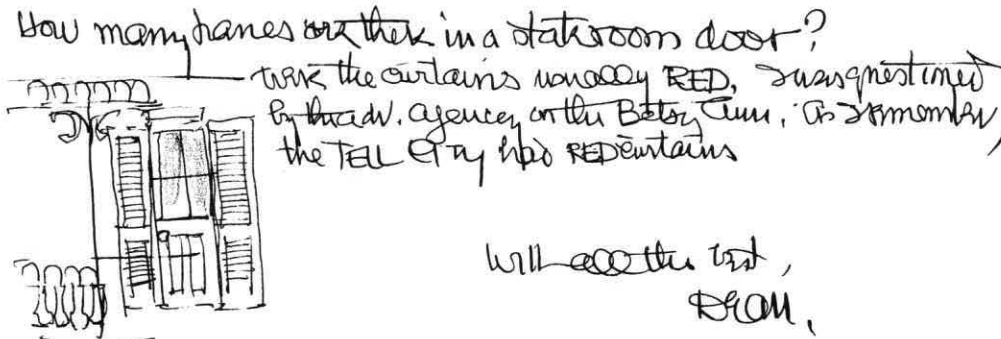 How many panes are there in a stateroom door?
were the curtains usually RED. I was questioned
by the adv. agency on the Betsy Ann. As I remember,
the TELL CITY had RED curtains
With all the best,